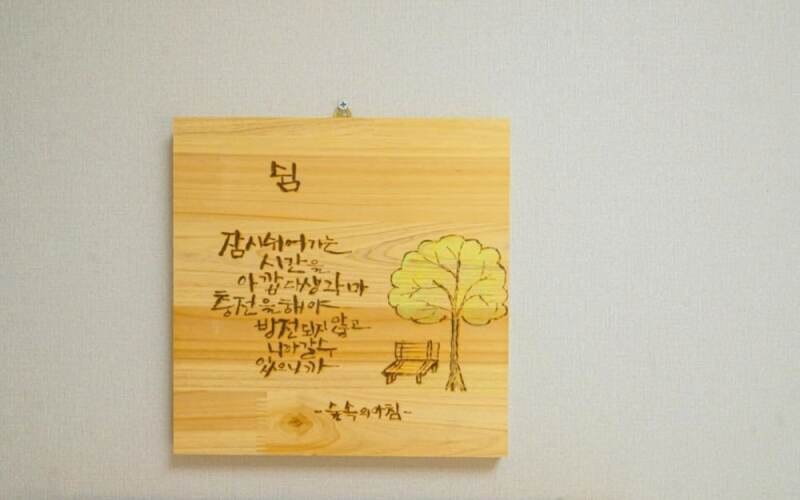 쉼
잠시쉬어가는
시간을
아깝다생각마
충전을해야
방전되지않고
나아갈수
있으니까
-숲속의아침-